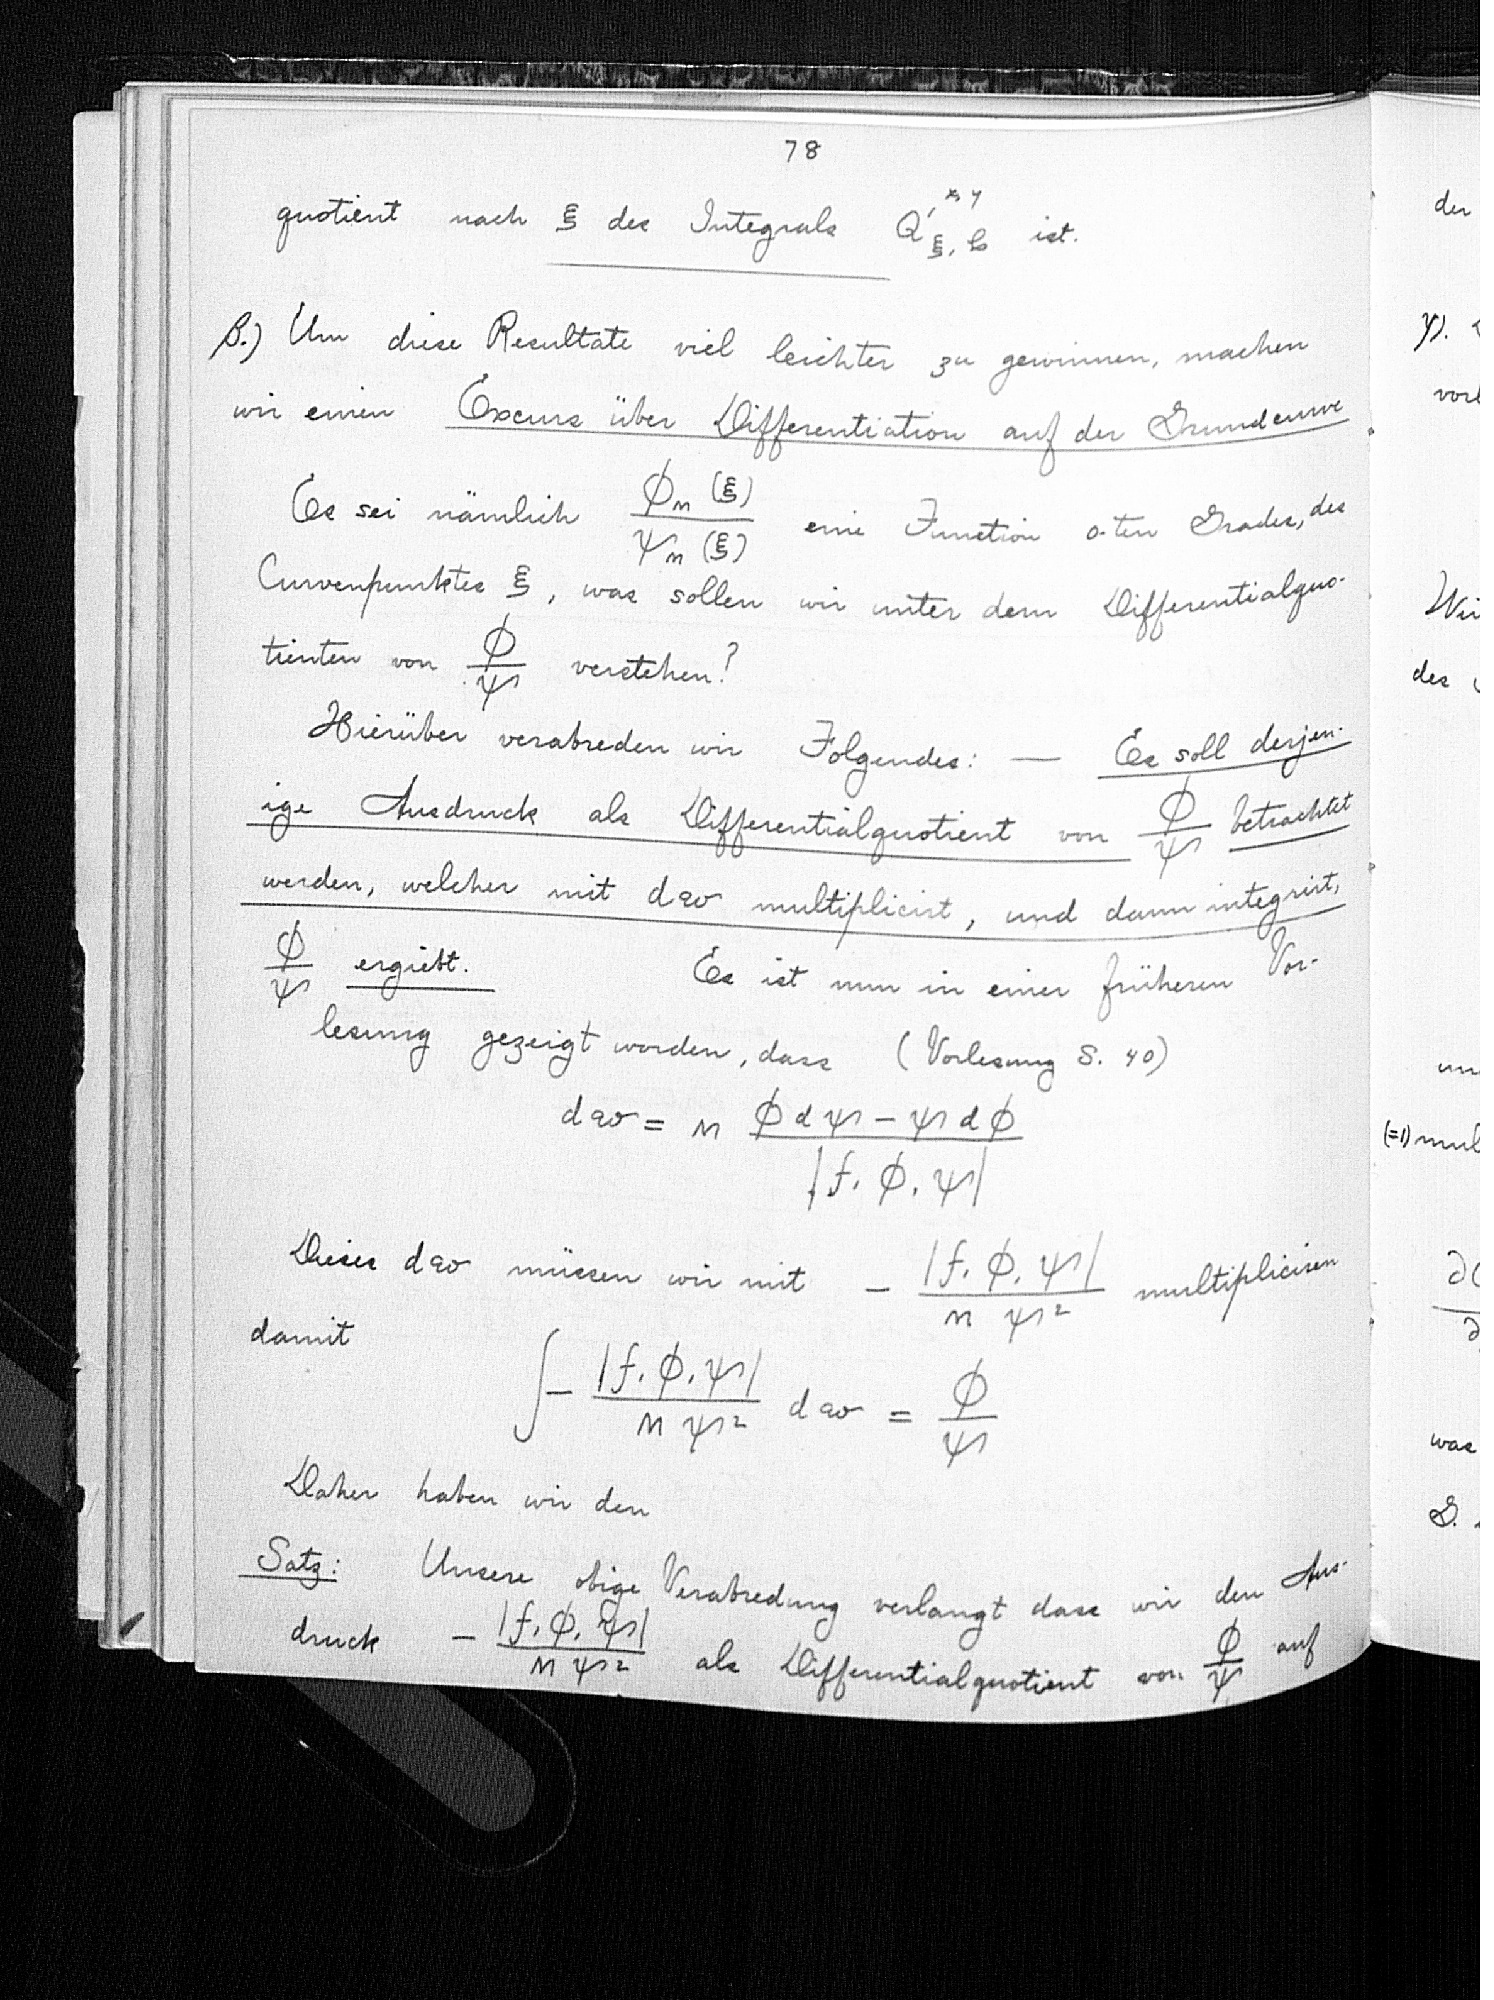 78
quotient nach ξ des Integrals Q'^{xy}_{ξ, b} ist.
β.) Um diese Resultate viel leichter zu gewinnen, machen
wir einen Excurs über Differentiation auf der Grundcurve
Es sei nämlich \frac{ϕ_m (ξ)}{ψ_m (ξ)} eine Function 0-ten Grades, des
Curvenpunktes ξ, was sollen wir unter dem Differentialquo-
tienten von \frac{ϕ}{ψ} verstehen?
Hierüber verabreden wir Folgendes: — Es soll derjen-
ige Ausdruck als Differentialquotient von \frac{ϕ}{ψ} betrachtet
werden, welcher mit dω multiplicirt, und dann integrirt,
\frac{ϕ}{ψ} ergiebt. Es ist nun in einer früheren Vor-
lesung gezeigt worden, dass (Vorlesung S. 40)
dω = m \frac{ϕ dψ - ψ dϕ}{|f, ϕ, ψ|}
Dieses dω müssen wir mit - \frac{|f, ϕ, ψ|}{m ψ^2} multipliciren
damit
∫ - \frac{|f, ϕ, ψ|}{m ψ^2} dω = \frac{ϕ}{ψ}
Daher haben wir den
Satz: Unsere obige Verabredung verlangt dass wir den Aus-
druck - \frac{|f, ϕ, ψ|}{m ψ^2} als Differentialquotient von \frac{ϕ}{ψ} auf
der
γ).
vorl
Wir
des
un
(=1) mul
was
S.